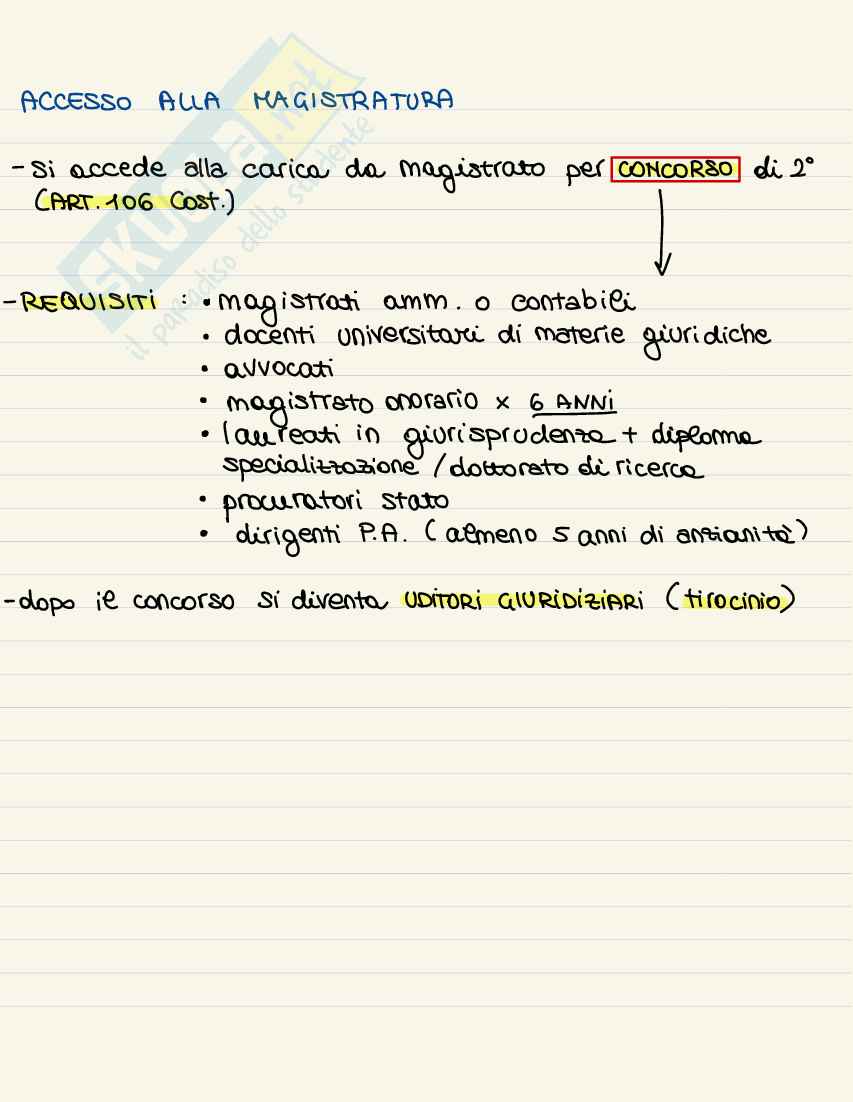 ACCESSO ALLA MAGISTRATURA
- Si accede alla carica da magistrato per CONCORSO di 2°
(ART. 106 Cost.)
- REQUISITI : • magistrati amm. o contabili
• docenti universitari di materie giuridiche
• avvocati
• magistrato onorario x 6 ANNI
• laureati in giurisprudenza + diploma
specializzazione / dottorato di ricerca
• procuratori stato
• dirigenti P.A. (almeno 5 anni di anzianità)
- dopo il concorso si diventa UDITORI GIURIDIZIARI (tirocinio)
SKUOLA.net
il paradiso dello studente